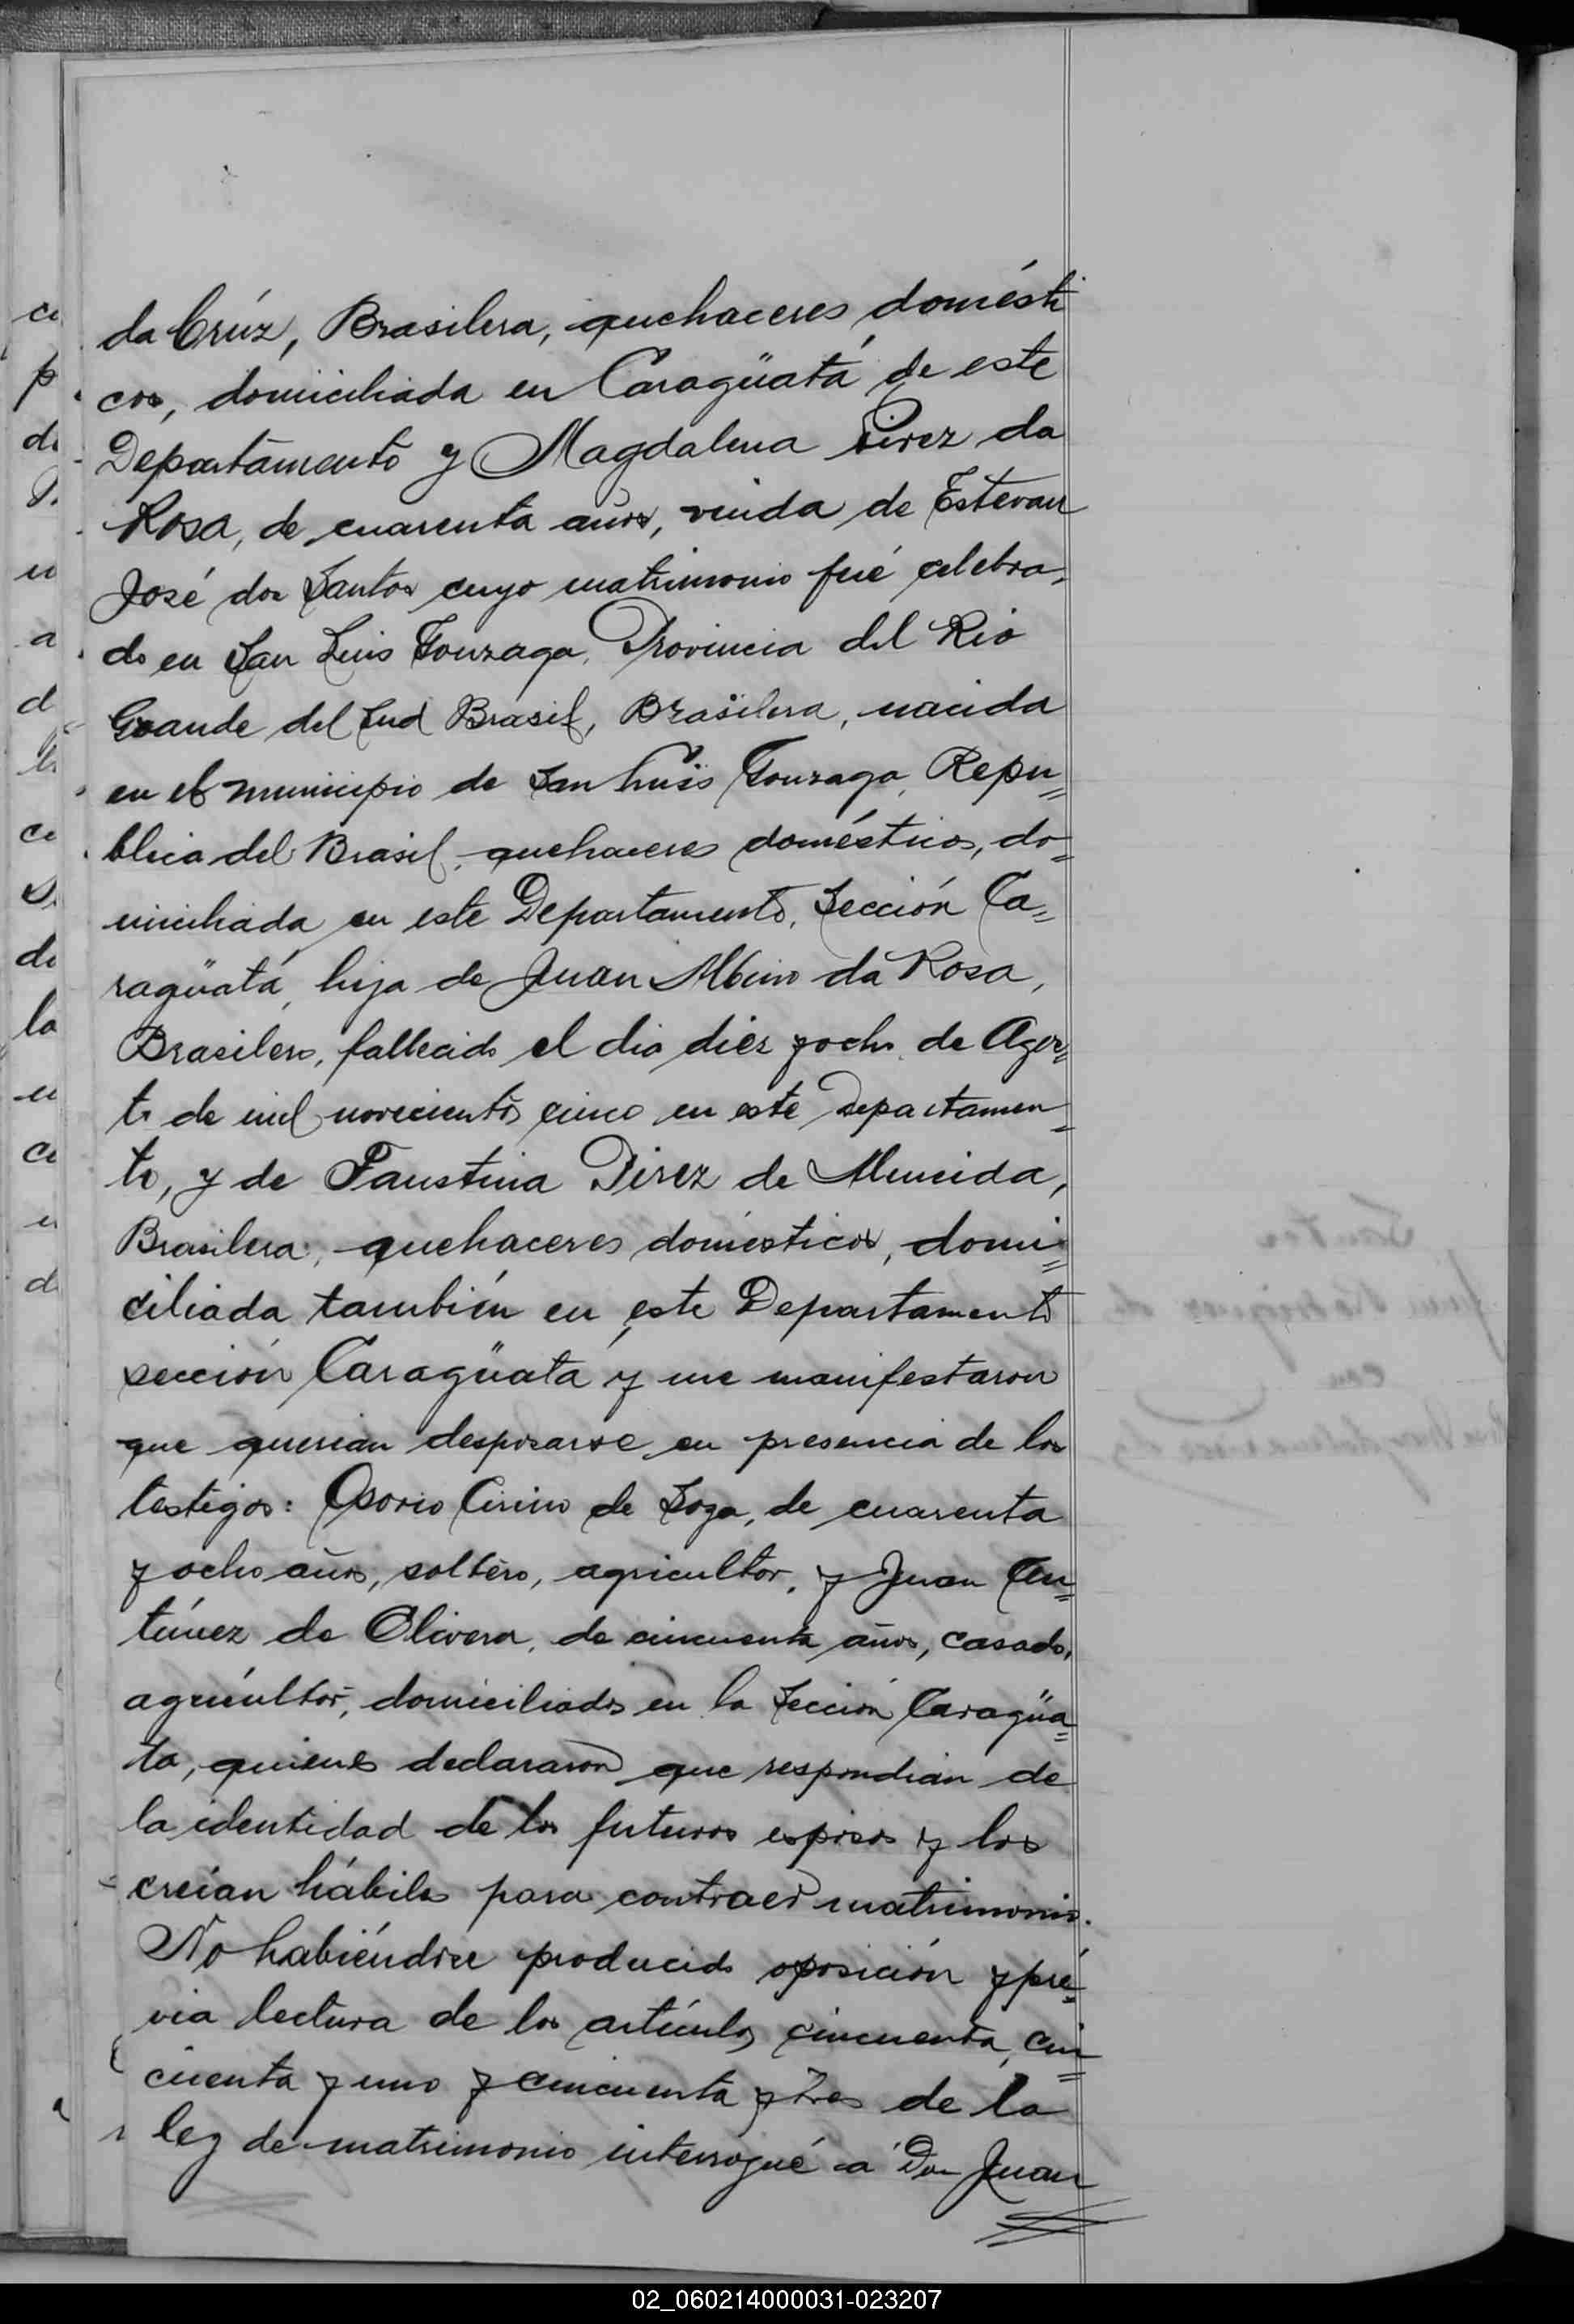 da Crúz, Brasilera, quehaceres domésti
cos, domiciliada en Caragüatá de este
Departamento y Magdalena Pirez da
Rosa, de cuarenta años, viuda de Estevan
José dos Santos cuyo matrimonio fué celebra-
do en San Luis Gonzaga, Provincia del Rio
Grande del Sud Brasil, Brasilera, nacida
en el municipio de San Luis Gonzaga, Repu=
blica del Brasil, quehaceres domésticos, do=
miciliada en este Departamento, Sección Ca=
ragüatá, hija de Juan Albino da Rosa,
Brasilero, fallecido el dia diez y ocho de Agos=
to de mil novecientos cinco en este Departamen=
to, y de Faustina Pirez de Almeida,
Brasilera, quehaceres domésticos, domi=
ciliada también en este Departamento
sección Caragüatá y me manifestaron
que querian desposarse en presencia de los
testigos: Osorio Cirino de Soza, de cuarenta
y ocho años, soltero, agricultor, y Juan An=
túnez de Olivera, de cincuenta años, casado,
agricultor, domiciliados en la Sección Caragüa=
ta, quienes declararon que respondian de
la identidad de los futuros esposos y los
creían hábiles para contraer matrimonio.
No habiéndose producido oposición y pré=
via lectura de los artículos cincuenta, cin=
cuenta y uno y cincuenta y tres de la
ley de matrimonio interrogué a Don Juan
02_060214000031-023207